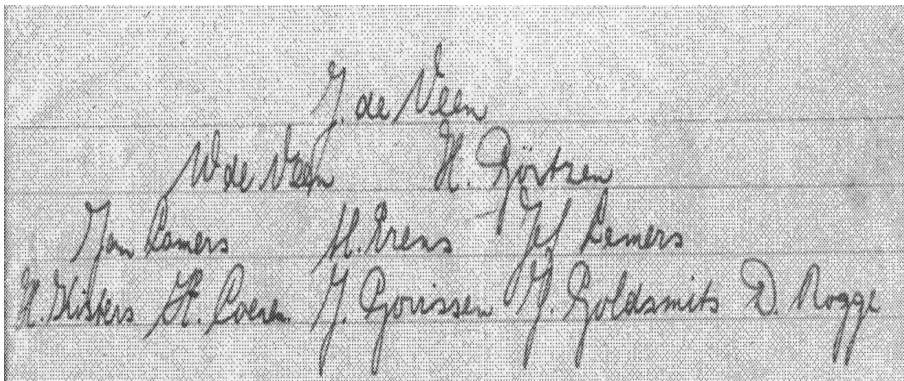 J. de Veen
W de Veen H. Görtzen
Jan Lamers H. Erens Jef Lemers
H. Hisbers H. Coenen J. Gorissen J. Goldsmits D. Rogge